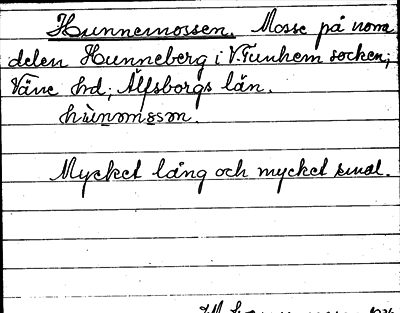 Hunnemossen. Mosse på norra
delen Hunneberg i V. Tunhem socken,
Väne hd, Älfsborgs län.
hùnəmòsən.
Mycket lång och mycket smal.